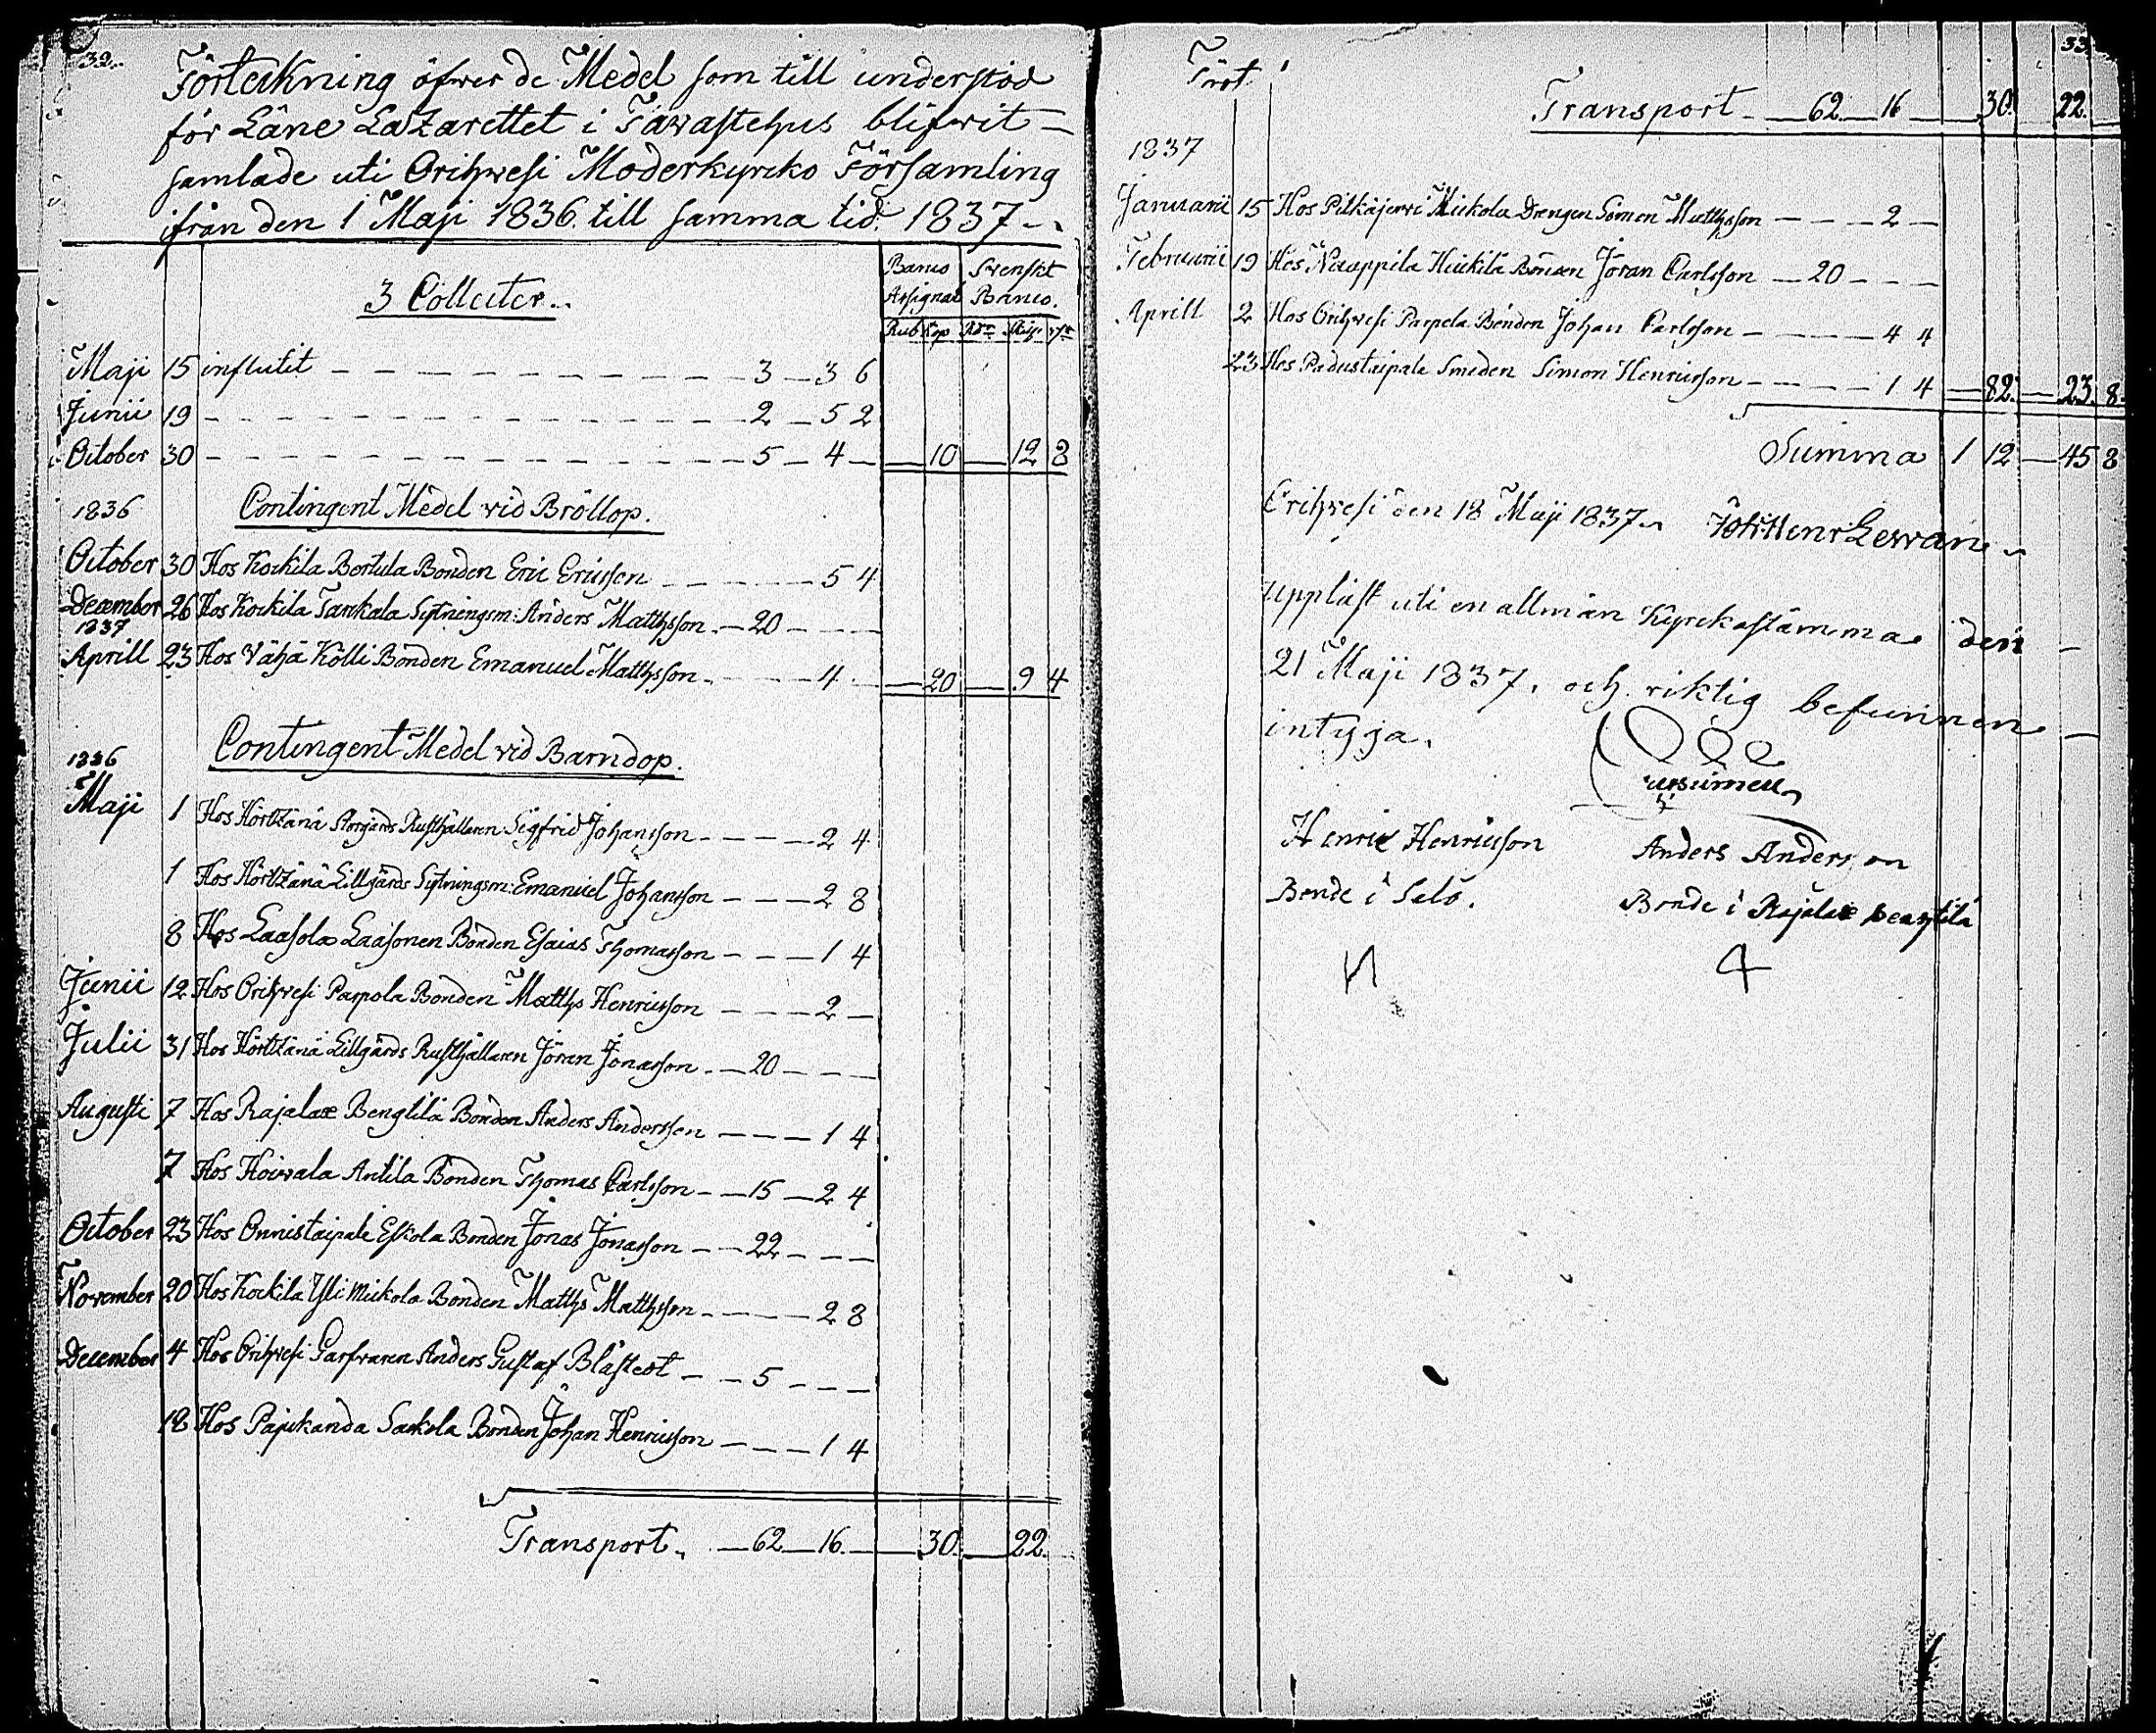 32.
Förteckning öfwer de Medel som till understöd
för Läne Lazarettet i Tawastehus blifwit
samlade uti Orihwesi Moderkyrcko Församling
ifrån den 1 Maji 1836. till samma tid. 1837
3 Collecter.
Banco Assignat Svenskt Banco.
Rub Kop Rdr Skil rst
Maji 15 influtit 3 3 6
Junii 19 2 5 2
October 30 5 4 10 12 8
1836 Contingent Medel vid Bröllop.
October 30 Hos Kockila Bertula Bonden Eric Ericsson 5 4
December 26 Hos Kockila Tarckala Sytningsm: Anders Matthsson 20
1837
Aprill 23 Hos Vähä Kölli Bonden Emanuel Matthsson 4 20 9 4
1836 Contingent Medel vid Barndop.
Maji 1 Hos Hörtzänä Storgårds Rusthållaren Sigfrid Johansson 2 4
1 Hos Hörtzänä Lillgårds Sytningsm: Emanuel Johansson 2 8
8 Hos Laasola Laasonen Bonden Esaias Thomasson 1 4
Junii 12 Hos Orihwesi Parpola Bonden Matths Henricsson 2
Julii 31 Hos Hörtzänä Lillgårds Rusthållaren Jöran Jonasson 20
Augusti 7 Hos Rajalax Bengtilä Bonden Anders Andersson 1 4
7 Hos Hoivala Antila Bonden Thomas Carlsson 15 2 4
October 23 Hos Onnistaipale Eskola Bonden Jonas Jonasson 22
November 20 Hos Kockila Yli Mickola Bonden Matths Matthsson 2 8
December 4 Hos Orihwesi Garfvaren Anders Gustaf Blåstedt 5
18 Hos Pajukanda Sackola Bonden Johan Henricsson 1 4
Transport. 62 16. 30. 22.
33
Transport 62 16 30. 22.
1837
Januarii 15 Hos Pitkäjerwi Mickola Drengen Simon Matthsson 2
Februarii 19 Hos Nauppila Heickilä Bonden Jöran Carlsson 20
Aprill 2 Hos Orihwesi Parpola Bonden Johan Carlsson 4 4
23 Hos Padustaipale Smeden Simon Henricsson 1 4 82. 23. 8.
Summa 1 12 45 8
Orihwesi den 18 Maji 1837. Joh: Henr Lewan
Uppläst uti en allmän Kyrckostämma den
21 Maji 1837. och riktig befunnen
intyga.
Henric Henricsson Anders Andersson
Bonde i Selö. Bonde i Rajalax Bengtilä